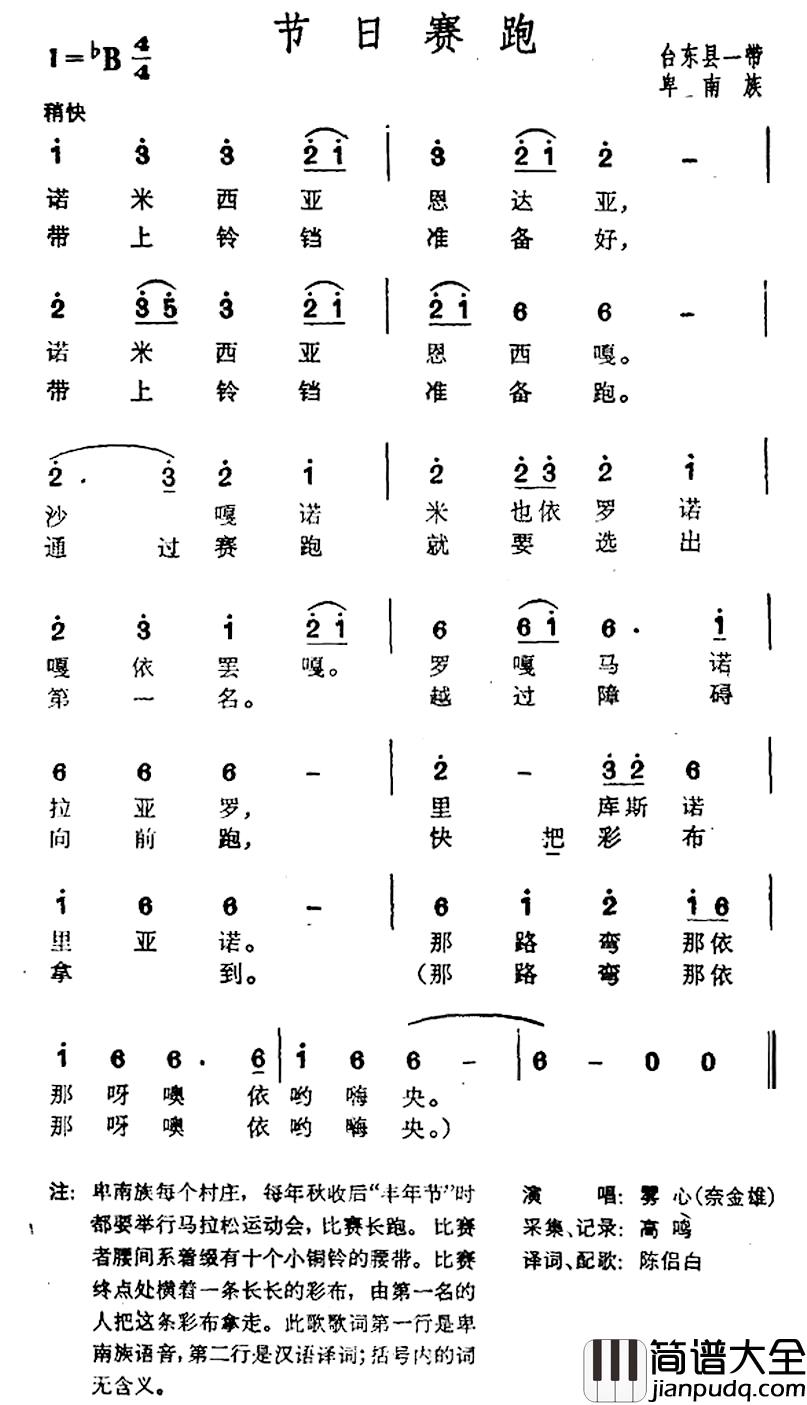 节日赛跑
1=♭B 4/4
台东县一带
卑南族
稍快
1̇ 3̇ 3̇ 2̇ 1̇ | 3̇ 2̇ 1̇ 2̇ – |
诺 米 西 亚 恩 达 亚,
带 上 铃 铛 准 备 好,
2̇ 3̇ 5̇ 3̇ 2̇ 1̇ | 2̇ 1̇ 6 6 – |
诺 米 西 亚 恩 西 嘎。
带 上 铃 铛 准 备 跑。
2̇ . 3̇ 2̇ 1̇ | 2̇ 2̇ 3̇ 2̇ 1̇ |
沙 嘎 诺 米 也依 罗 诺
通 过 赛 跑 就 要 选 出
2̇ 3̇ 1̇ 2̇ 1̇ | 6 6 1̇ 6 . 1̇ |
嘎 依 罢 嘎。 罗 嘎 马 诺
第 一 名。 越 过 障 碍
6 6 6 – | 2̇ – 3̇ 2̇ 6 |
拉 亚 罗, 里 库斯 诺
向 前 跑, 快 把 彩 布
1̇ 6 6 – | 6 1̇ 2̇ 1̇ 6 |
里 亚 诺。 那 路 弯 那依
拿 到。 (那 路 弯 那依
1̇ 6 6 . 6 | 1̇ 6 6 – | 6 – 0 0 ‖
那 呀 噢 依 哟 嗨 央。
那 呀 噢 依 哟 嗨 央。)
注: 卑南族每个村庄, 每年秋收后“丰年节”时
都要举行马拉松运动会, 比赛长跑。 比赛
者腰间系着缀有十个小铜铃的腰带。比赛
终点处横着一条长长的彩布, 由第一名的
人把这条彩布拿走。此歌歌词第一行是卑
南族语音, 第二行是汉语译词; 括号内的词
无含义。
演 唱: 雾 心(奈金雄)
采集、记录: 高 鸣
译词、配歌: 陈侣白
简谱大全
jianpudq.com